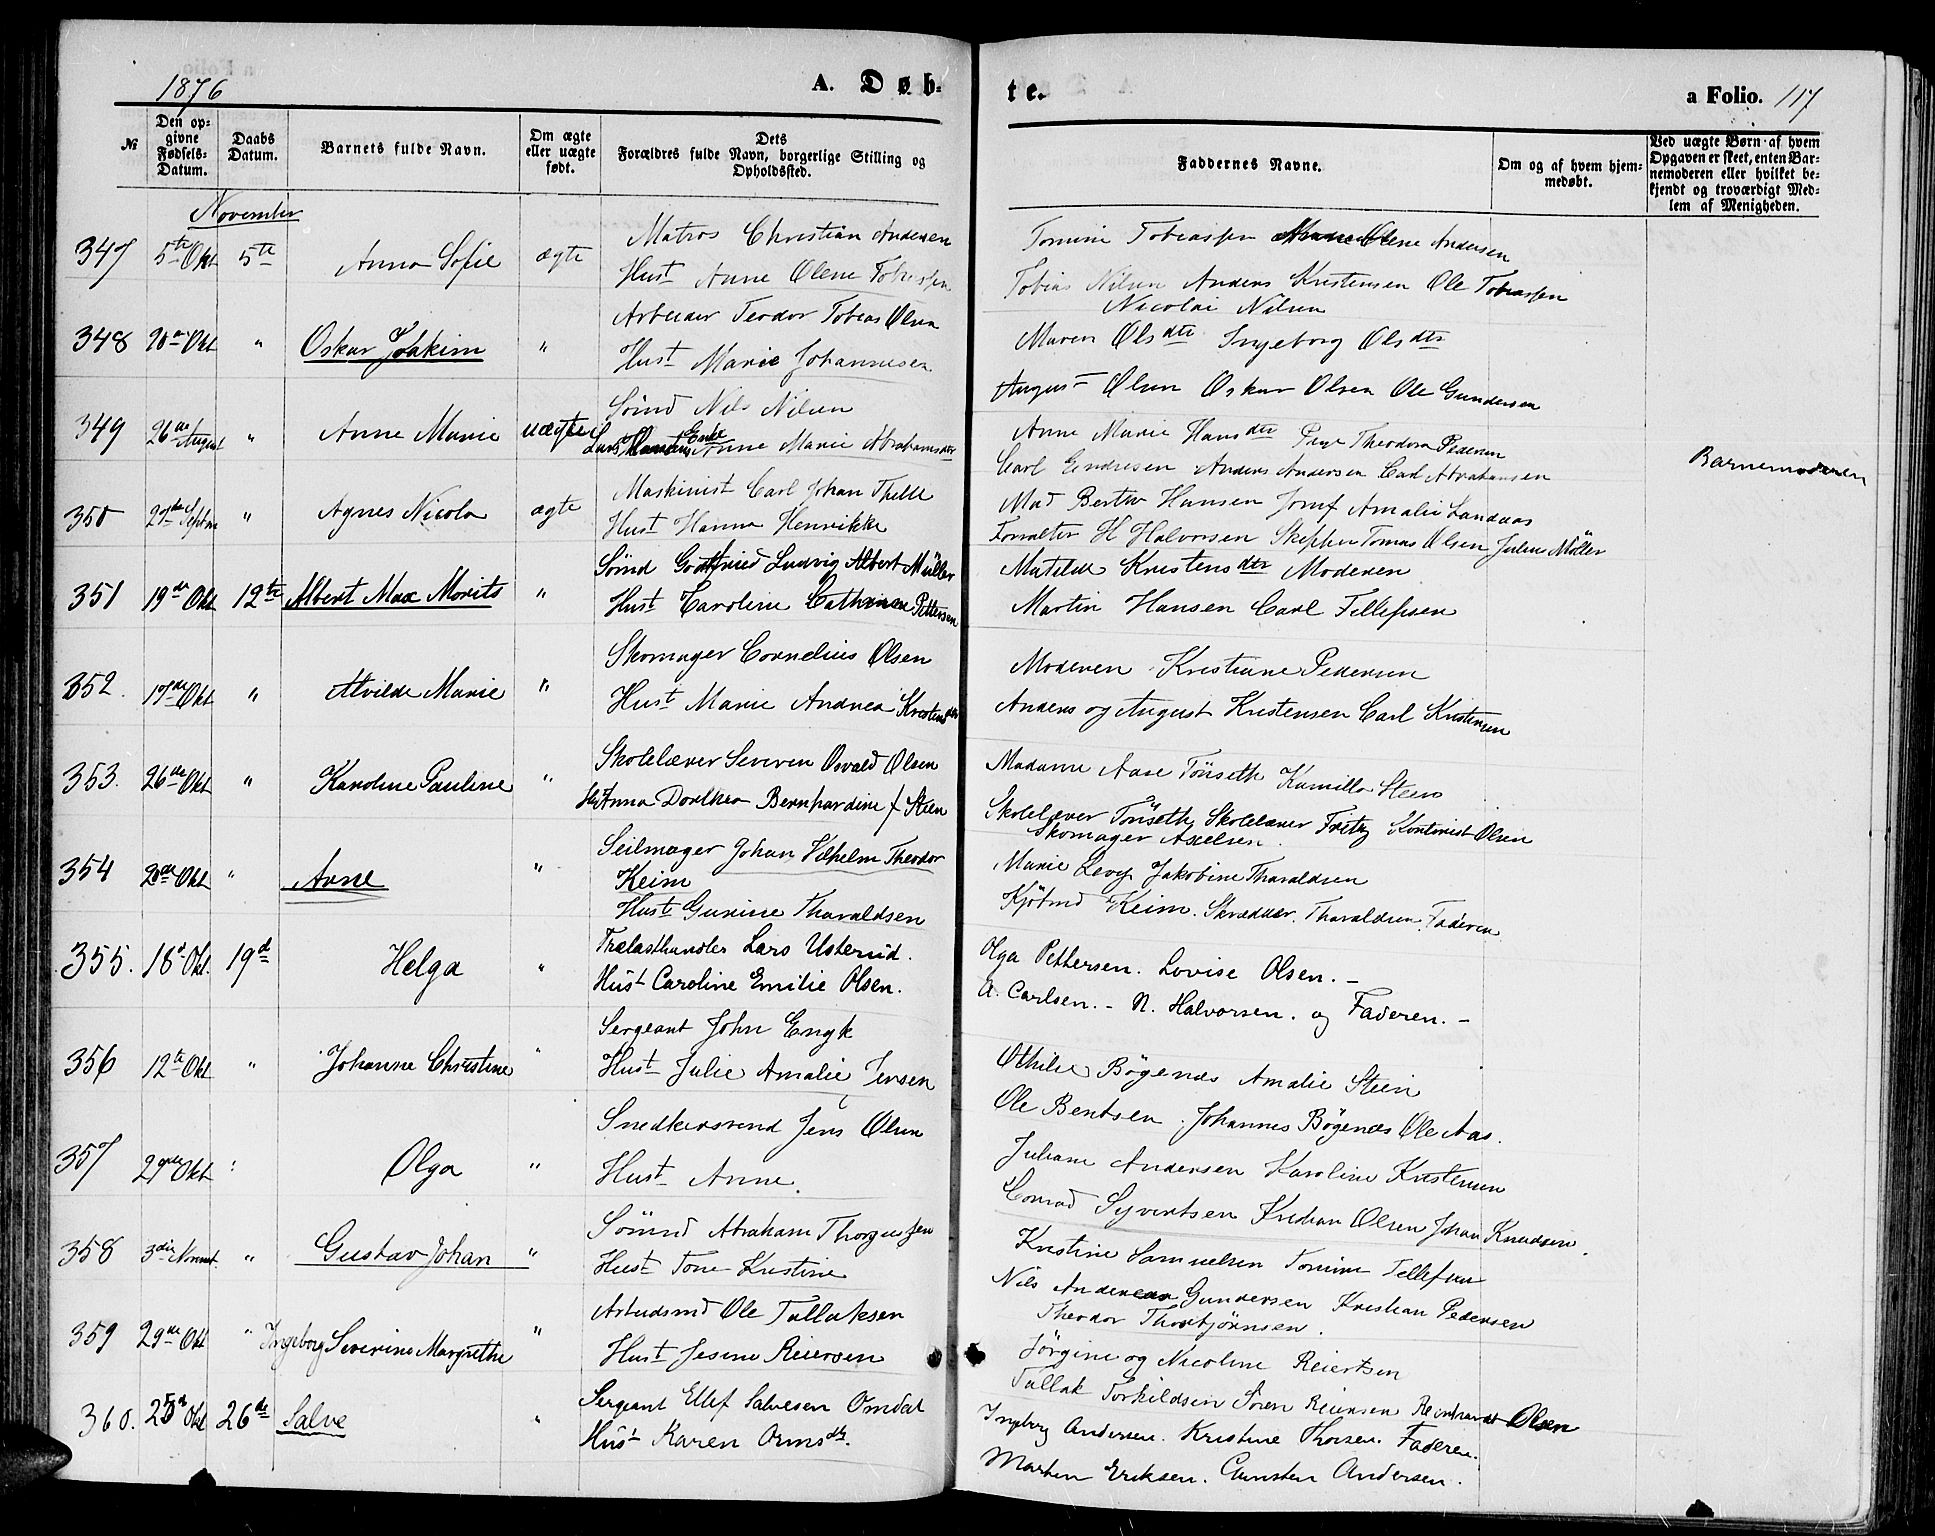 1876
A. Døb-
te.
a Folio. 117
№
Den op-
givne
Fødsels-
Datum.
Daabs
Datum.
Barnets fulde Navn.
Om ægte
eller uægte
født.
Dets
Forældres fulde Navn, borgerlige Stilling og
Opholdssted.
Faddernes Navne.
Om og af hvem hjem-
medøbt.
Ved uægte Børn af hvem
Opgaven er skeet, enten Bar-
nemoderen eller hvilket be-
kjendt og troværdigt Med-
lem af Menigheden.
November
347 5te Okt 5te Anna Sofie ægte
Matros Christian Andersen
Hust Anne Olene Tobiassen
Tomine Tobiassen Olene Andersen
Tobias Nilsen Anders Kristensen Ole Tobiassen
Nicolai Nilsen
348 20de Okt " Oskar Joakim "
Arbeider Teodor Tobias Olsen
Hust Marie Johannesen
Maren Olsdtr Ingeborg Olsdtr
August Olsen Oskar Olsen Ole Gundersen
349 26de August " Anne Marie uægte
Sømd Nils Nilsen
Lars Hansens Enke Anne Marie Abrahamsdtr
Anne Marie Hansdtr Pige Theodora Pedersen
Carl Endresen Anders Andersen Carl Abrahamsen
Barnemoderen
350 27de Septbr " Agnes Nicola ægte
Maskinist Carl Johan Thelle
Hust Hanna Henrikke
Mad Bertha Hansen Jomf Amalie Landaas
Forvalter H Halvorsen Skipper Tomas Olsen Julius Møller
351 19de Okt 12te Albert Max Morits "
Sømd Gottfried Ludvig Albert Müller
Hust Caroline Cathrine Pettersen
Matilde Kristensdtr Moderen
Martin Hansen Carl Tellefsen
352. 17de Okt " Alvilde Marie "
Skomager Cornelius Olsen
Hust Marie Andrea Kristensdtr
Moderen Kristiane Pedersen
Anders og August Kristensen Carl Kristensen
353. 26de Okt " Karoline Pauline "
Skolelærer Severin Osvald Olsen
Hst Anna Dorthea Bernhardine f Steen
Madame Aase Tönseth Kamilla Steen
Skolelærer Tönseth Skolelærer Fritz Kontorist Olsen
Skomager Axelsen.
354 20de Okt " Arne "
Seilmager Johan Vilhelm Theodor
Keim
Hust Gurine Tharaldsen
Marie Levy Jakobine Tharaldsen
Kjøbmd Keim. Skrædder. Tharaldsen. Faderen
355. 18d Okt. 19d Helga "
Trælasthandler Lars Usterud.
Hust Caroline Emilie Olsen.
Olga Pettersen. Lovise Olsen. –
A. Carlsen. – N. Halvorsen. og Faderen. –
356 12te Okt " Johanne Christine "
Sergeant John Engh
Hust Julie Amalie Jensen
Othilie Bøgenæs Amalie Steen
Ole Bentsen. Johannes Bøgenæs Ole Aas.
357 29de Okt " Olga "
Snedkersvend Jens Olsen
Hust Anne.
Juliane Andersen Karoline Kristensen
Conrad Syvertsen Kristian Olsen Johan Knudsen.
358 3die Novembr. " Gustav Johan "
Sömd Abraham Thorgussen
Hust Tone Kristine
Kristine Samuelsen Tomine Tellefsen
Nils Andersen Gundersen Kristian Pedersen
Theodor Thorbjörnsen.
359 29de Okt " Ingeborg Severine Margrethe "
Arbeidsmd Ole Tallaksen
Hust Jesine Reiersen
Jörgine og Nicoline Reiertsen
Tallak Torkildsen Sören Reiersen Reinhardt Olsen
360. 25de Okt 26de Salve "
Sergeant Ellef Salvesen Omdal
Hust Karen Ormsdtr.
Ingeborg Andersen. Kristine Thorsen. Faderen.
Morten Eriksen. Gunsten Andersen.